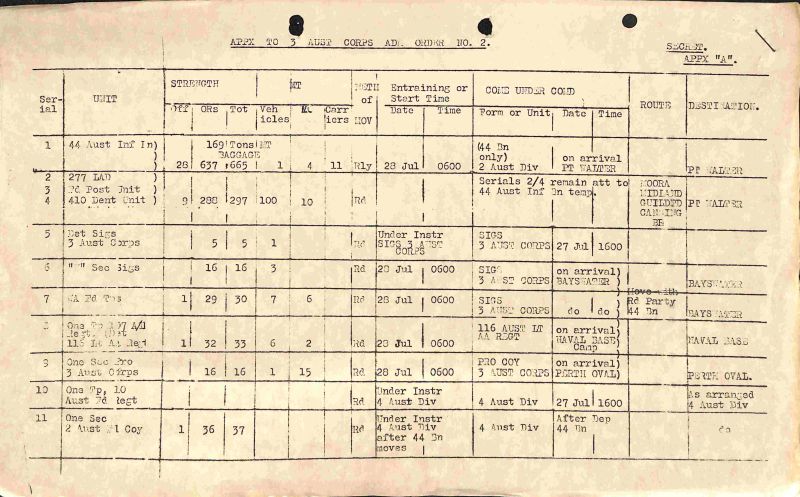 APPX TO 3 AUST CORPS ADM ORDER NO. 2.
SECRET.
APPX "A".
Serial UNIT STRENGTH MT METH of MOV Entraining or Start Time COMD UNDER COMD ROUTE DESTINATION.
Off ORs Tot Vehicles MC Carriers Date Time Form or Unit Date Time
1 44 Aust Inf Bn) 169 Tons MT (44 Bn
) BAGGAGE only) on arrival
) 28 637 665 1 4 11 Rly 28 Jul 0600 2 Aust Div PT WALTER PT WALTER
2 277 LAD ) Serials 2/4 remain att to MOORA
3 Fd Post Unit ) 44 Aust Inf Bn temp. MIDLAND
4 410 Dent Unit ) 9 288 297 100 10 Rd GUILDFD PT WALTER
CANNING
BR
5 Det Sigs Under Instr SIGS
3 Aust Corps 5 5 1 Rd SIGS 3 AUST CORPS 3 AUST CORPS 27 Jul 1600
6 Sec Sigs 16 16 3 Rd 28 Jul 0600 SIGS on arrival)
3 AUST CORPS BAYSWATER) BAYSWATER
7 WA Fd Tps 1 29 30 7 6 Rd 28 Jul 0600 SIGS ) Move with
3 AUST CORPS do do ) Rd Party
44 Bn BAYSWATER
8 One Tp 197 A/U 116 AUST LT on arrival)
Regt, AA REGT NAVAL BASE)
116 Lt AA Regt 1 32 33 6 2 Rd 28 Jul 0600 Camp ) NAVAL BASE
9 One Sec Pro PRO COY on arrival)
3 Aust Corps 16 16 1 15 Rd 28 Jul 0600 3 AUST CORPS PERTH OVAL) PERTH OVAL.
10 One Tp, 10 Under Instr As arranged
Aust Fd Regt Rd 4 Aust Div 4 Aust Div 27 Jul 1600 4 Aust Div
11 One Sec Under Instr After Dep
2 Aust Coy 1 36 37 Rd 4 Aust Div 4 Aust Div 44 Bn do
after 44 Bn
moves